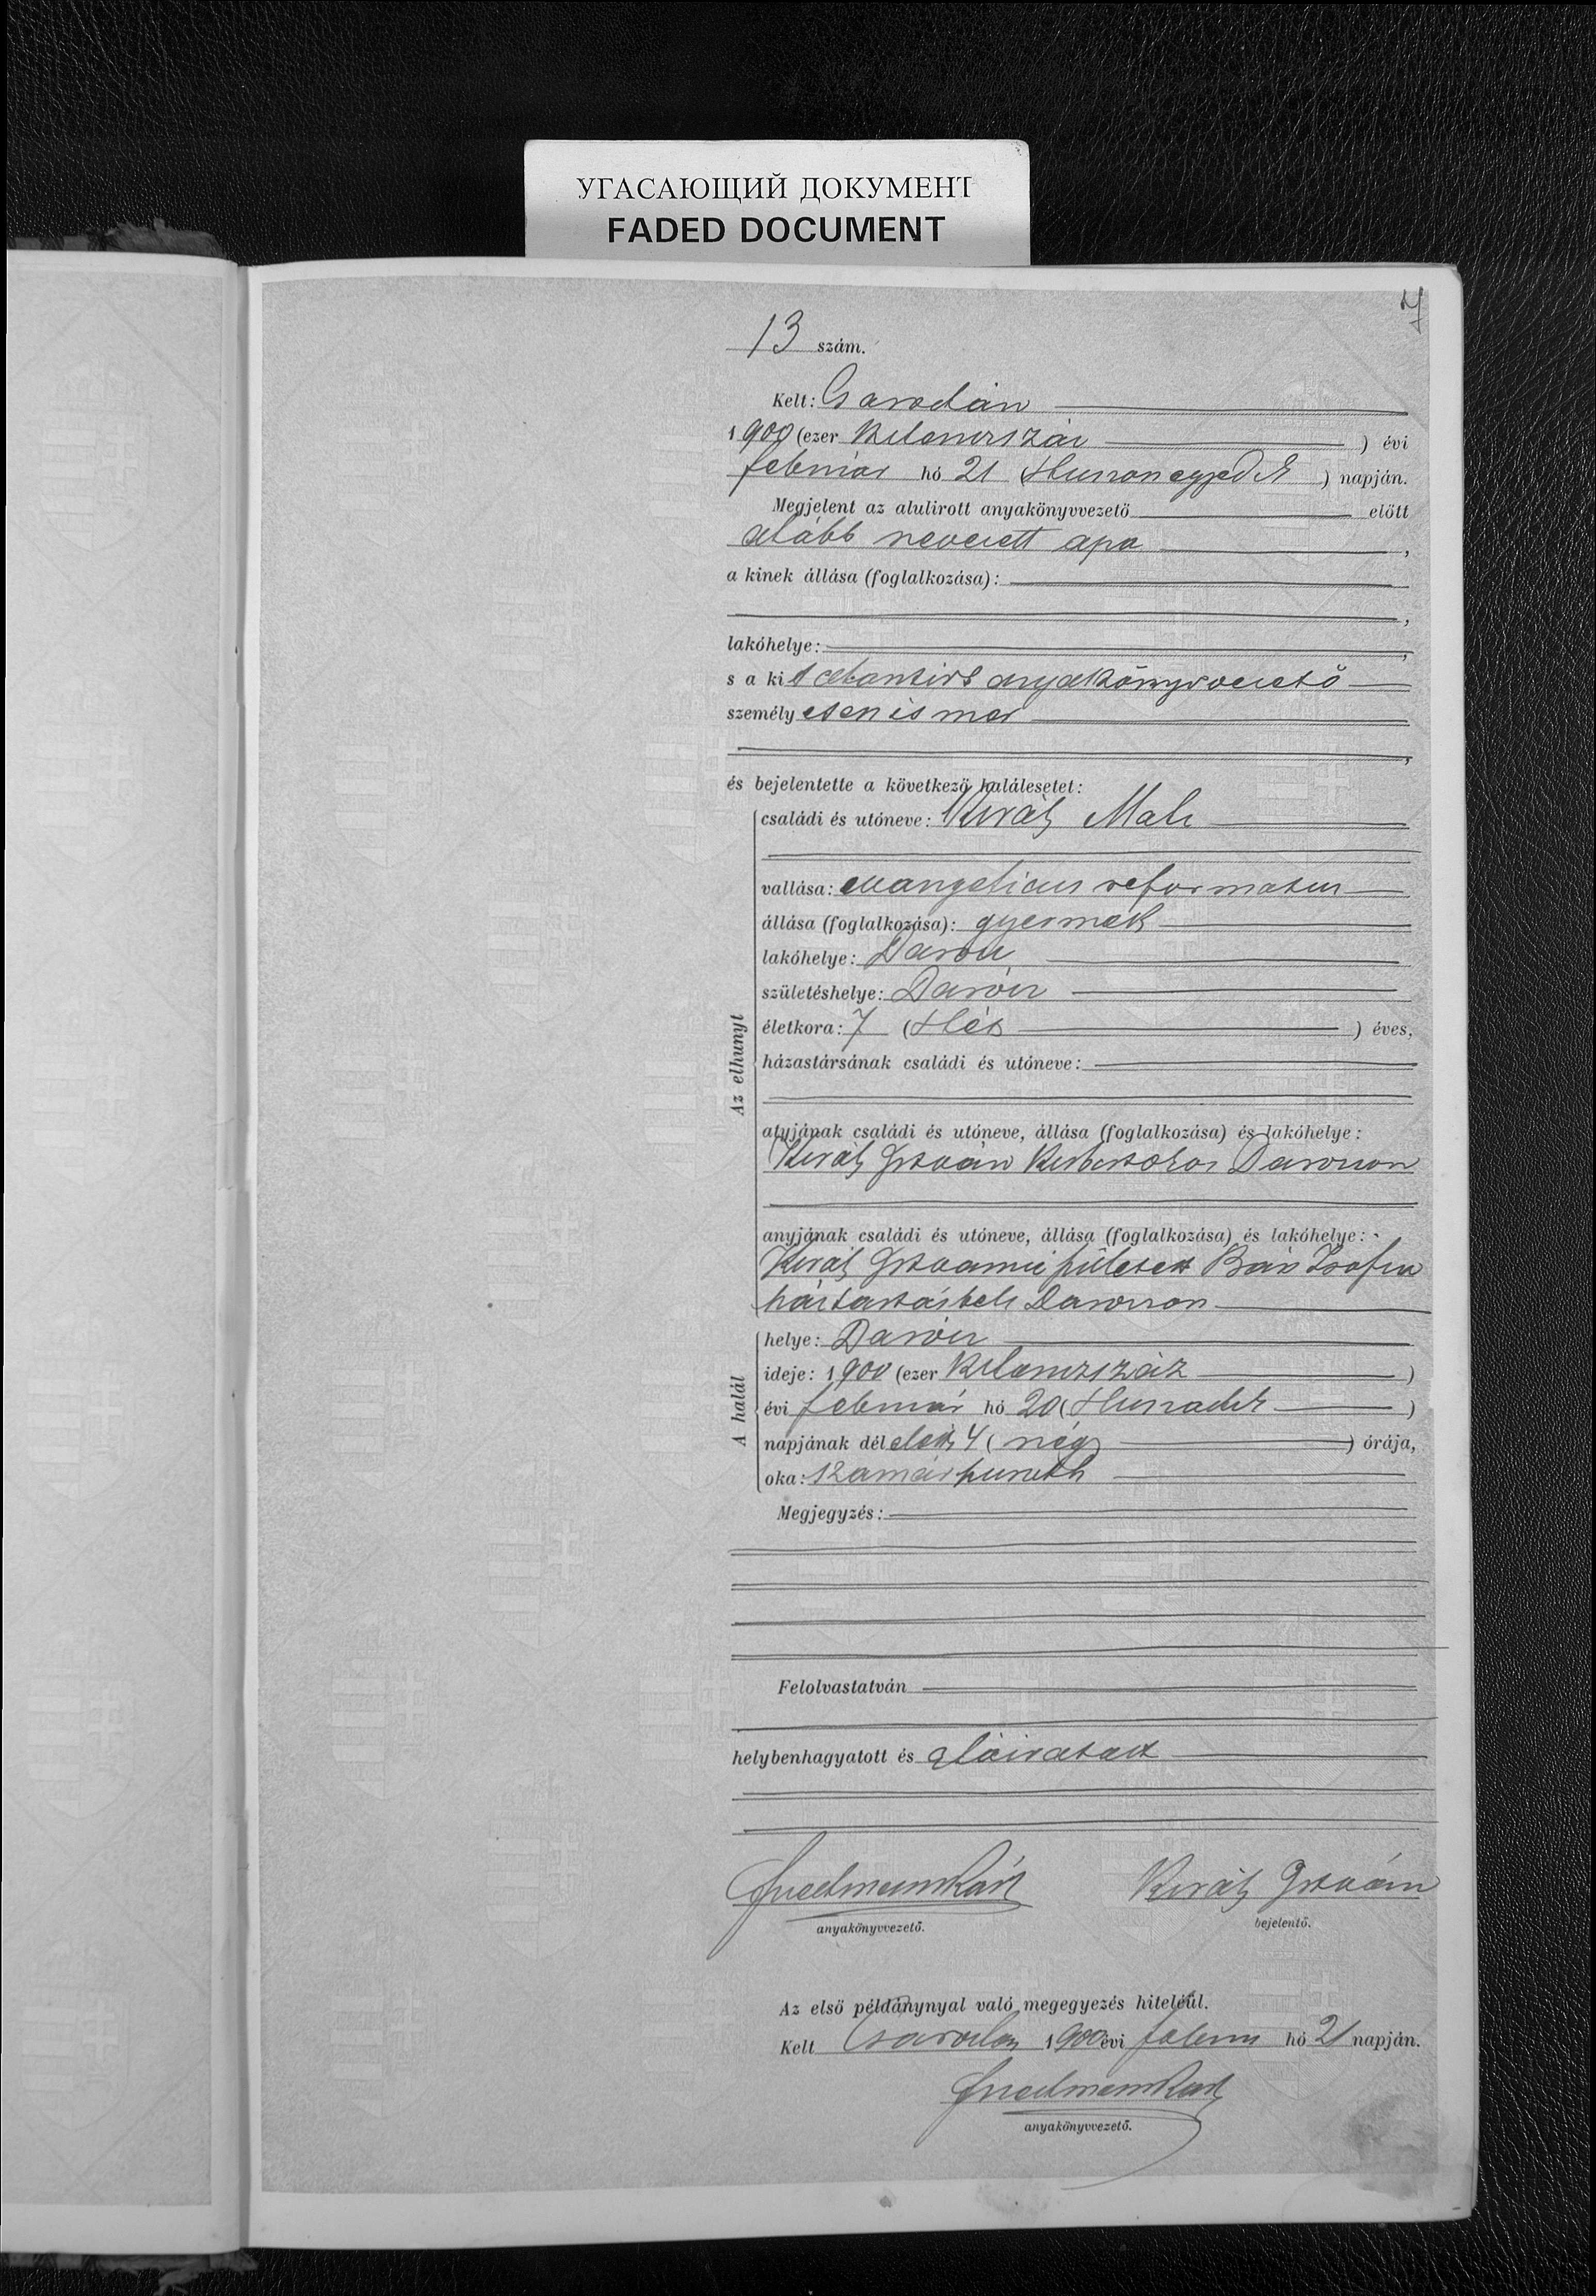 УГАСАЮЩИЙ ДОКУМЕНТ
FADED DOCUMENT
7
13 szám.
Kelt: Csarodán
1900 (ezer kilenczszáz) évi
február hó 21 (Huszonegyedik) napján.
Megjelent az alulirott anyakönyvvezető előtt
alább nevezett apa,
a kinek állása (foglalkozása):
lakóhelye:
s a kit alantirt anyakönyvvezető
személyesen ismer
és bejelentette a következő halálesetet:
Az elhunyt
családi és utóneve: Király
vallása: evangelicus reformatus
állása (foglalkozása): gyermek
lakóhelye: Darócz
születéshelye: Darócz
életkora: 7 (Hét) éves,
házastársának családi és utóneve:
atyjának családi és utóneve, állása (foglalkozása) és lakóhelye:
Király István kisbirtokos Daróczon
anyjának családi és utóneve, állása (foglalkozása) és lakóhelye:
Király Istvánné született Zsófia
háztartásbeli Daróczon
A halál
helye: Darócz
ideje: 1900 (ezer kilenczszáz)
évi február hó 20 (Huszadik)
napjának délelőtt 4 (négy) órája,
oka: szamárhuruth
Megjegyzés:
Felolvastatván
helybenhagyatott és aláiratott
Friedmann Károly Király István
anyakönyvvezető. bejelentő.
Az első példánynyal való megegyezés hiteléül.
Kelt Csarodán 1900 évi febru hó 21 napján.
Friedmann Károly
anyakönyvvezető.